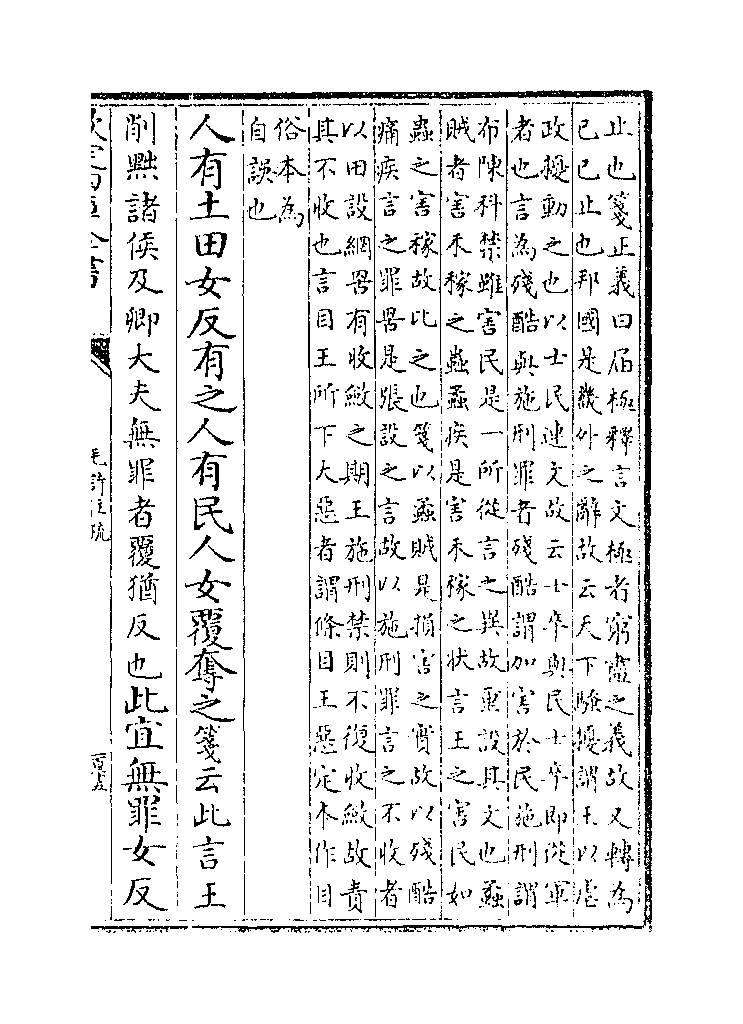 止也箋正義曰屆極釋言文極者窮盡之義故又轉為
已已止也邦國是畿外之辭故云天下騷擾謂王以虐
政擾動之也以士民連文故云士卒與民士卒即從軍
者也言為殘酷與施刑罪者殘酷謂加害於民施刑謂
布陳科禁雖害民是一所從言之異故重設其文也蟊
賊者害禾稼之蟲蟊疾是害禾稼之狀言王之害民如
蟲之害稼故比之也箋以蟊賊是損害之實故以殘酷
痛疾言之罪罟是張設之言故以施刑罪言之不收者
以田設網罟有收斂之期王施刑禁則不復收斂故責
其不收也言目王所下大惡者謂條目王惡定本作目
俗本為
自誤也
人有土田女反有之人有民人女覆奪之箋云此言王
削黜諸侯及卿大夫無罪者覆猶反也此宜無罪女反
欽定四庫全書
毛詩注疏